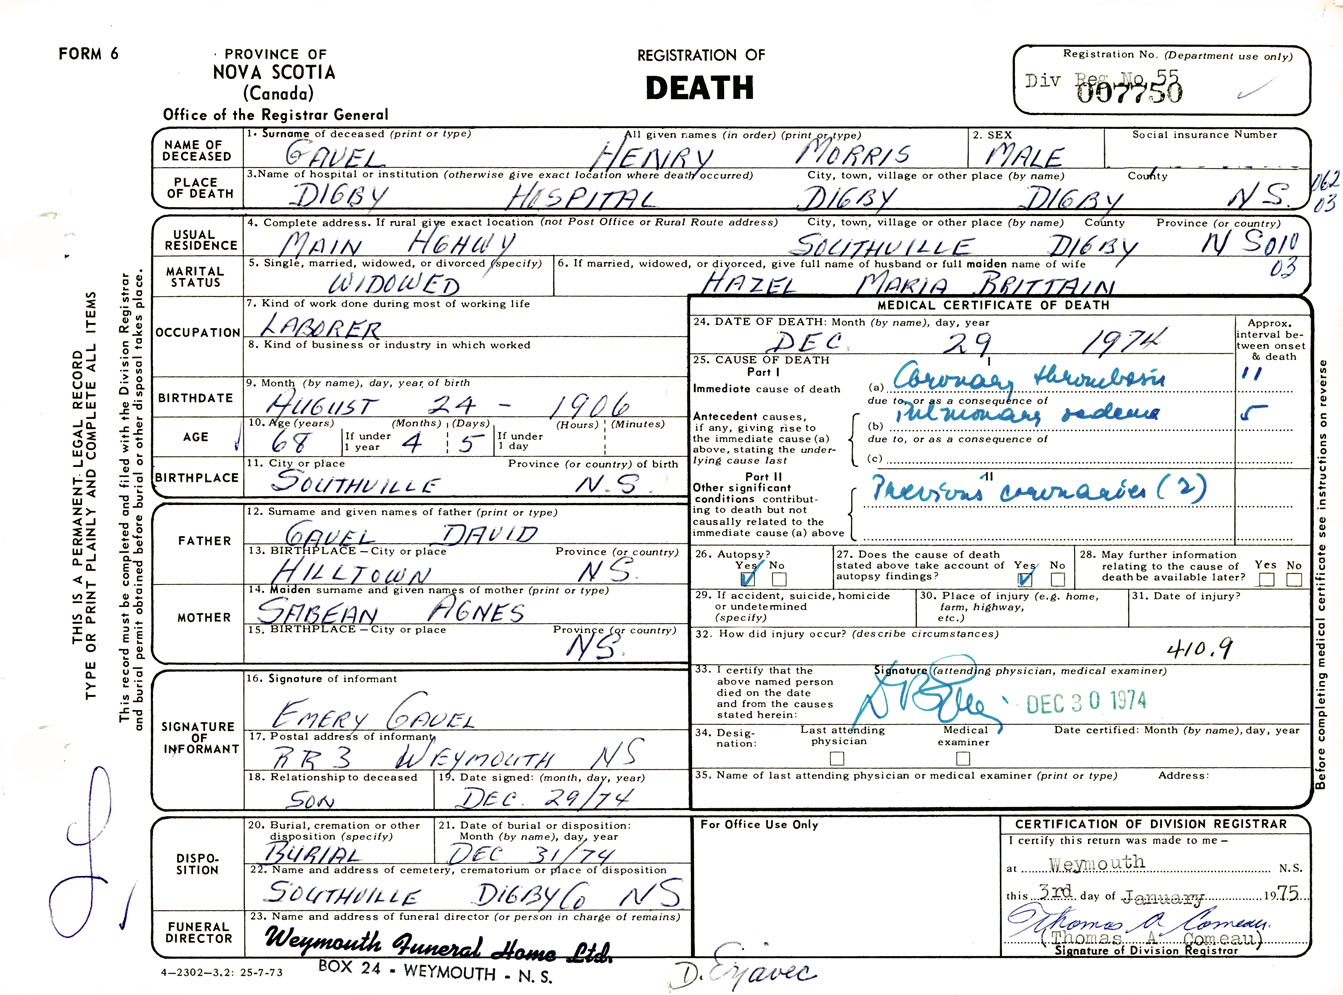 FORM 6
PROVINCE OF
NOVA SCOTIA
(Canada)
Office of the Registrar General
REGISTRATION OF
DEATH
Registration No. (Department use only)
Div Reg No 55
007750
NAME OF DECEASED
1. Surname of deceased (print or type) All given names (in order) (print or type)
GAVEL HENRY MORRIS
2. SEX
MALE
Social insurance Number
PLACE OF DEATH
3. Name of hospital or institution (otherwise give exact location where death occurred) City, town, village or other place (by name) County
DIGBY HOSPITAL DIGBY DIGBY N.S.
062
03
USUAL RESIDENCE
4. Complete address. If rural give exact location (not Post Office or Rural Route address) City, town, village or other place (by name) County Province (or country)
MAIN HGHWY SOUTHVILLE DIGBY N S 010
03
MARITAL STATUS
5. Single, married, widowed, or divorced (specify)
WIDOWED
6. If married, widowed, or divorced, give full name of husband or full maiden name of wife
HAZEL MARIA BRITTAIN
OCCUPATION
7. Kind of work done during most of working life
LABORER
8. Kind of business or industry in which worked
BIRTHDATE
9. Month (by name), day, year, of birth
AUGUST 24 - 1906
AGE
10. Age (years) (Months) (Days) (Hours) (Minutes)
68 If under 1 year 4 5 If under 1 day
BIRTHPLACE
11. City or place Province (or country) of birth
SOUTHVILLE N.S.
FATHER
12. Surname and given names of father (print or type)
GAVEL DAVID
13. BIRTHPLACE – City or place Province (or country)
HILLTOWN N.S.
MOTHER
14. Maiden surname and given names of mother (print or type)
SABEAN AGNES
15. BIRTHPLACE – City or place Province (or country)
N.S.
SIGNATURE OF INFORMANT
16. Signature of informant
EMERY GAVEL
17. Postal address of informant
RR3 WEYMOUTH NS
18. Relationship to deceased
SON
19. Date signed: (month, day, year)
DEC. 29/74
DISPO-
SITION
20. Burial, cremation or other disposition (specify)
BURIAL
21. Date of burial or disposition: Month (by name), day, year
DEC 31/74
22. Name and address of cemetery, crematorium or place of disposition
SOUTHVILLE DIGBY Co NS
FUNERAL DIRECTOR
23. Name and address of funeral director (or person in charge of remains)
Weymouth Funeral Home Ltd.
BOX 24 - WEYMOUTH - N. S.
4–2302–3.2: 25-7-73
MEDICAL CERTIFICATE OF DEATH
24. DATE OF DEATH: Month (by name), day, year
DEC. 29 1974
Approx. interval be-
tween onset & death
25. CAUSE OF DEATH
Part I
Immediate cause of death
(a) Coronary thrombosis 11
due to, or as a consequence of
Antecedent causes, if any, giving rise to the immediate cause (a) above, stating the under-
lying cause last
(b) Pulmonary oedema 5
due to, or as a consequence of
(c)
Part II
Other significant conditions contribut-
ing to death but not causally related to the immediate cause (a) above
II
Previous coronaries (2)
26. Autopsy?
Yes No
27. Does the cause of death stated above take account of autopsy findings?
Yes No
28. May further information relating to the cause of death be available later?
Yes No
29. If accident, suicide, homicide or undetermined (specify)
30. Place of injury (e.g. home, farm, highway, etc.)
31. Date of injury?
32. How did injury occur? (describe circumstances)
410.9
33. I certify that the above named person died on the date and from the causes stated herein:
Signature (attending physician, medical examiner)
DEC 30 1974
34. Desig-
nation:
Last attending physician
Medical examiner
Date certified: Month (by name), day, year
35. Name of last attending physician or medical examiner (print or type) Address:
For Office Use Only
CERTIFICATION OF DIVISION REGISTRAR
I certify this return was made to me –
at Weymouth N.S.
this 3rd day of January 1975
Thomas A Comeau
(Thomas A Comeau)
Signature of Division Registrar
THIS IS A PERMANENT LEGAL RECORD
TYPE OR PRINT PLAINLY AND COMPLETE ALL ITEMS
This record must be completed and filed with the Division Registrar
and burial permit obtained before burial or other disposal takes place.
Before completing medical certificate see instructions on reverse